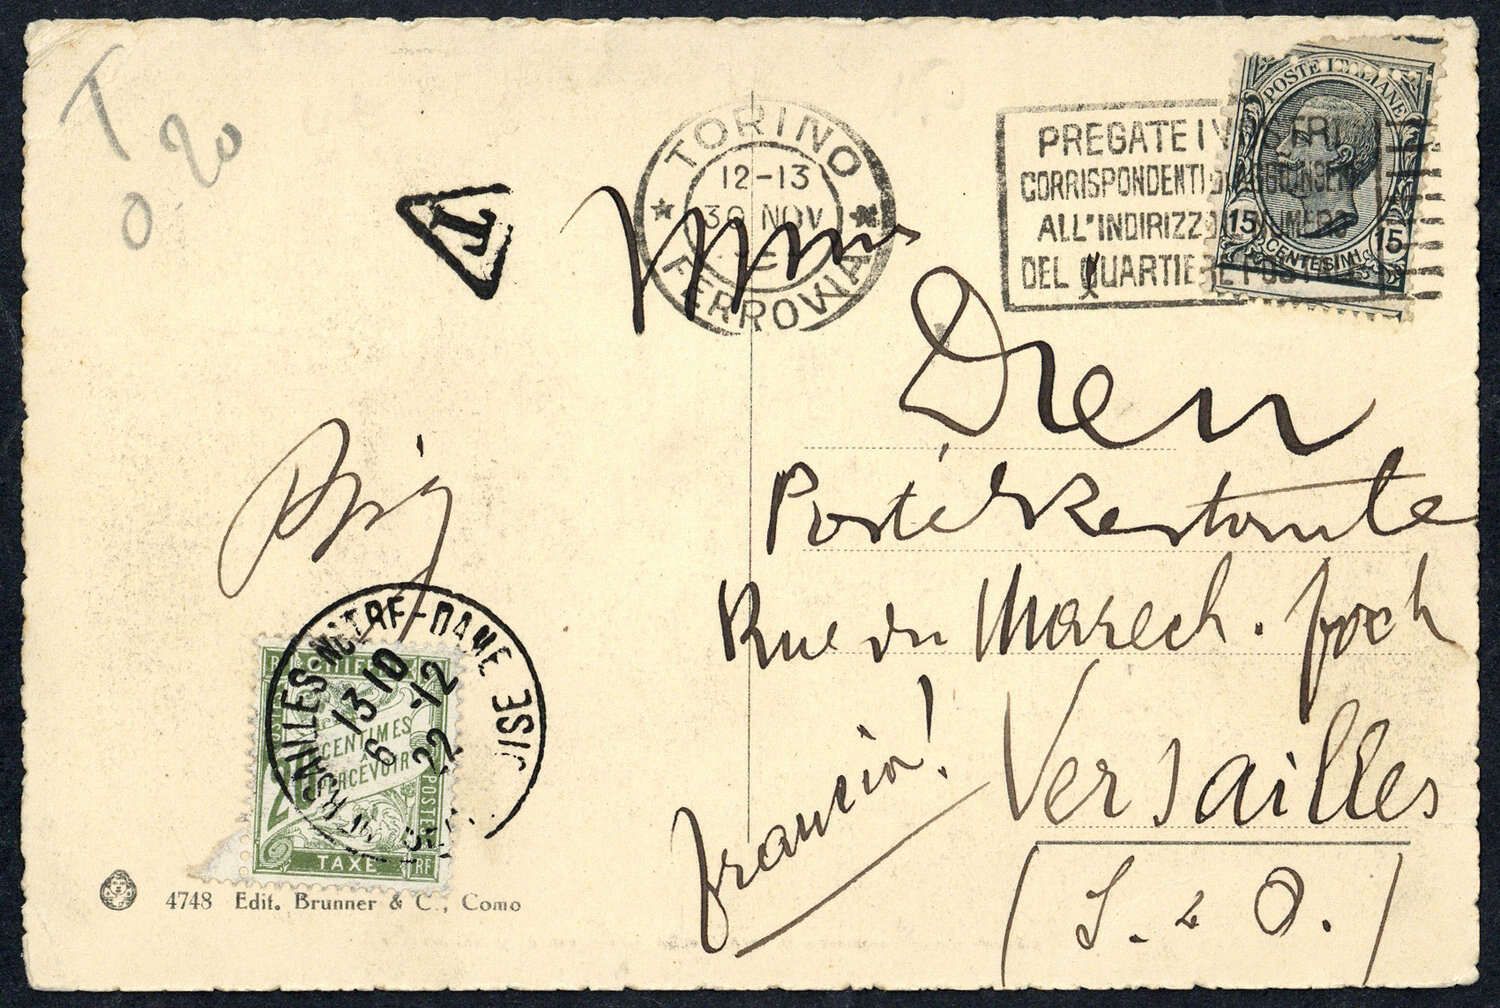 T
0.20
T
TORINO
12-13
30 NOV
FERROVIA
PREGATE I VOSTRI
CORRISPONDENTI
ALL'INDIRIZZO NUMERO
DEL QUARTIERE POSTALE
POSTE ITALIANE
15 15
CENTESIMI
Mme
Dren
Poste Restante
Rue du Marech. Foch
Versailles
(S. & O.)
Francia!
VERSAILLES NOTRE-DAME
13 10
6 -12
22
SEINE ET OISE
CENTIMES
À
PERCEVOIR
POSTES
TAXE
RF
4748 Edit. Brunner & C., Como